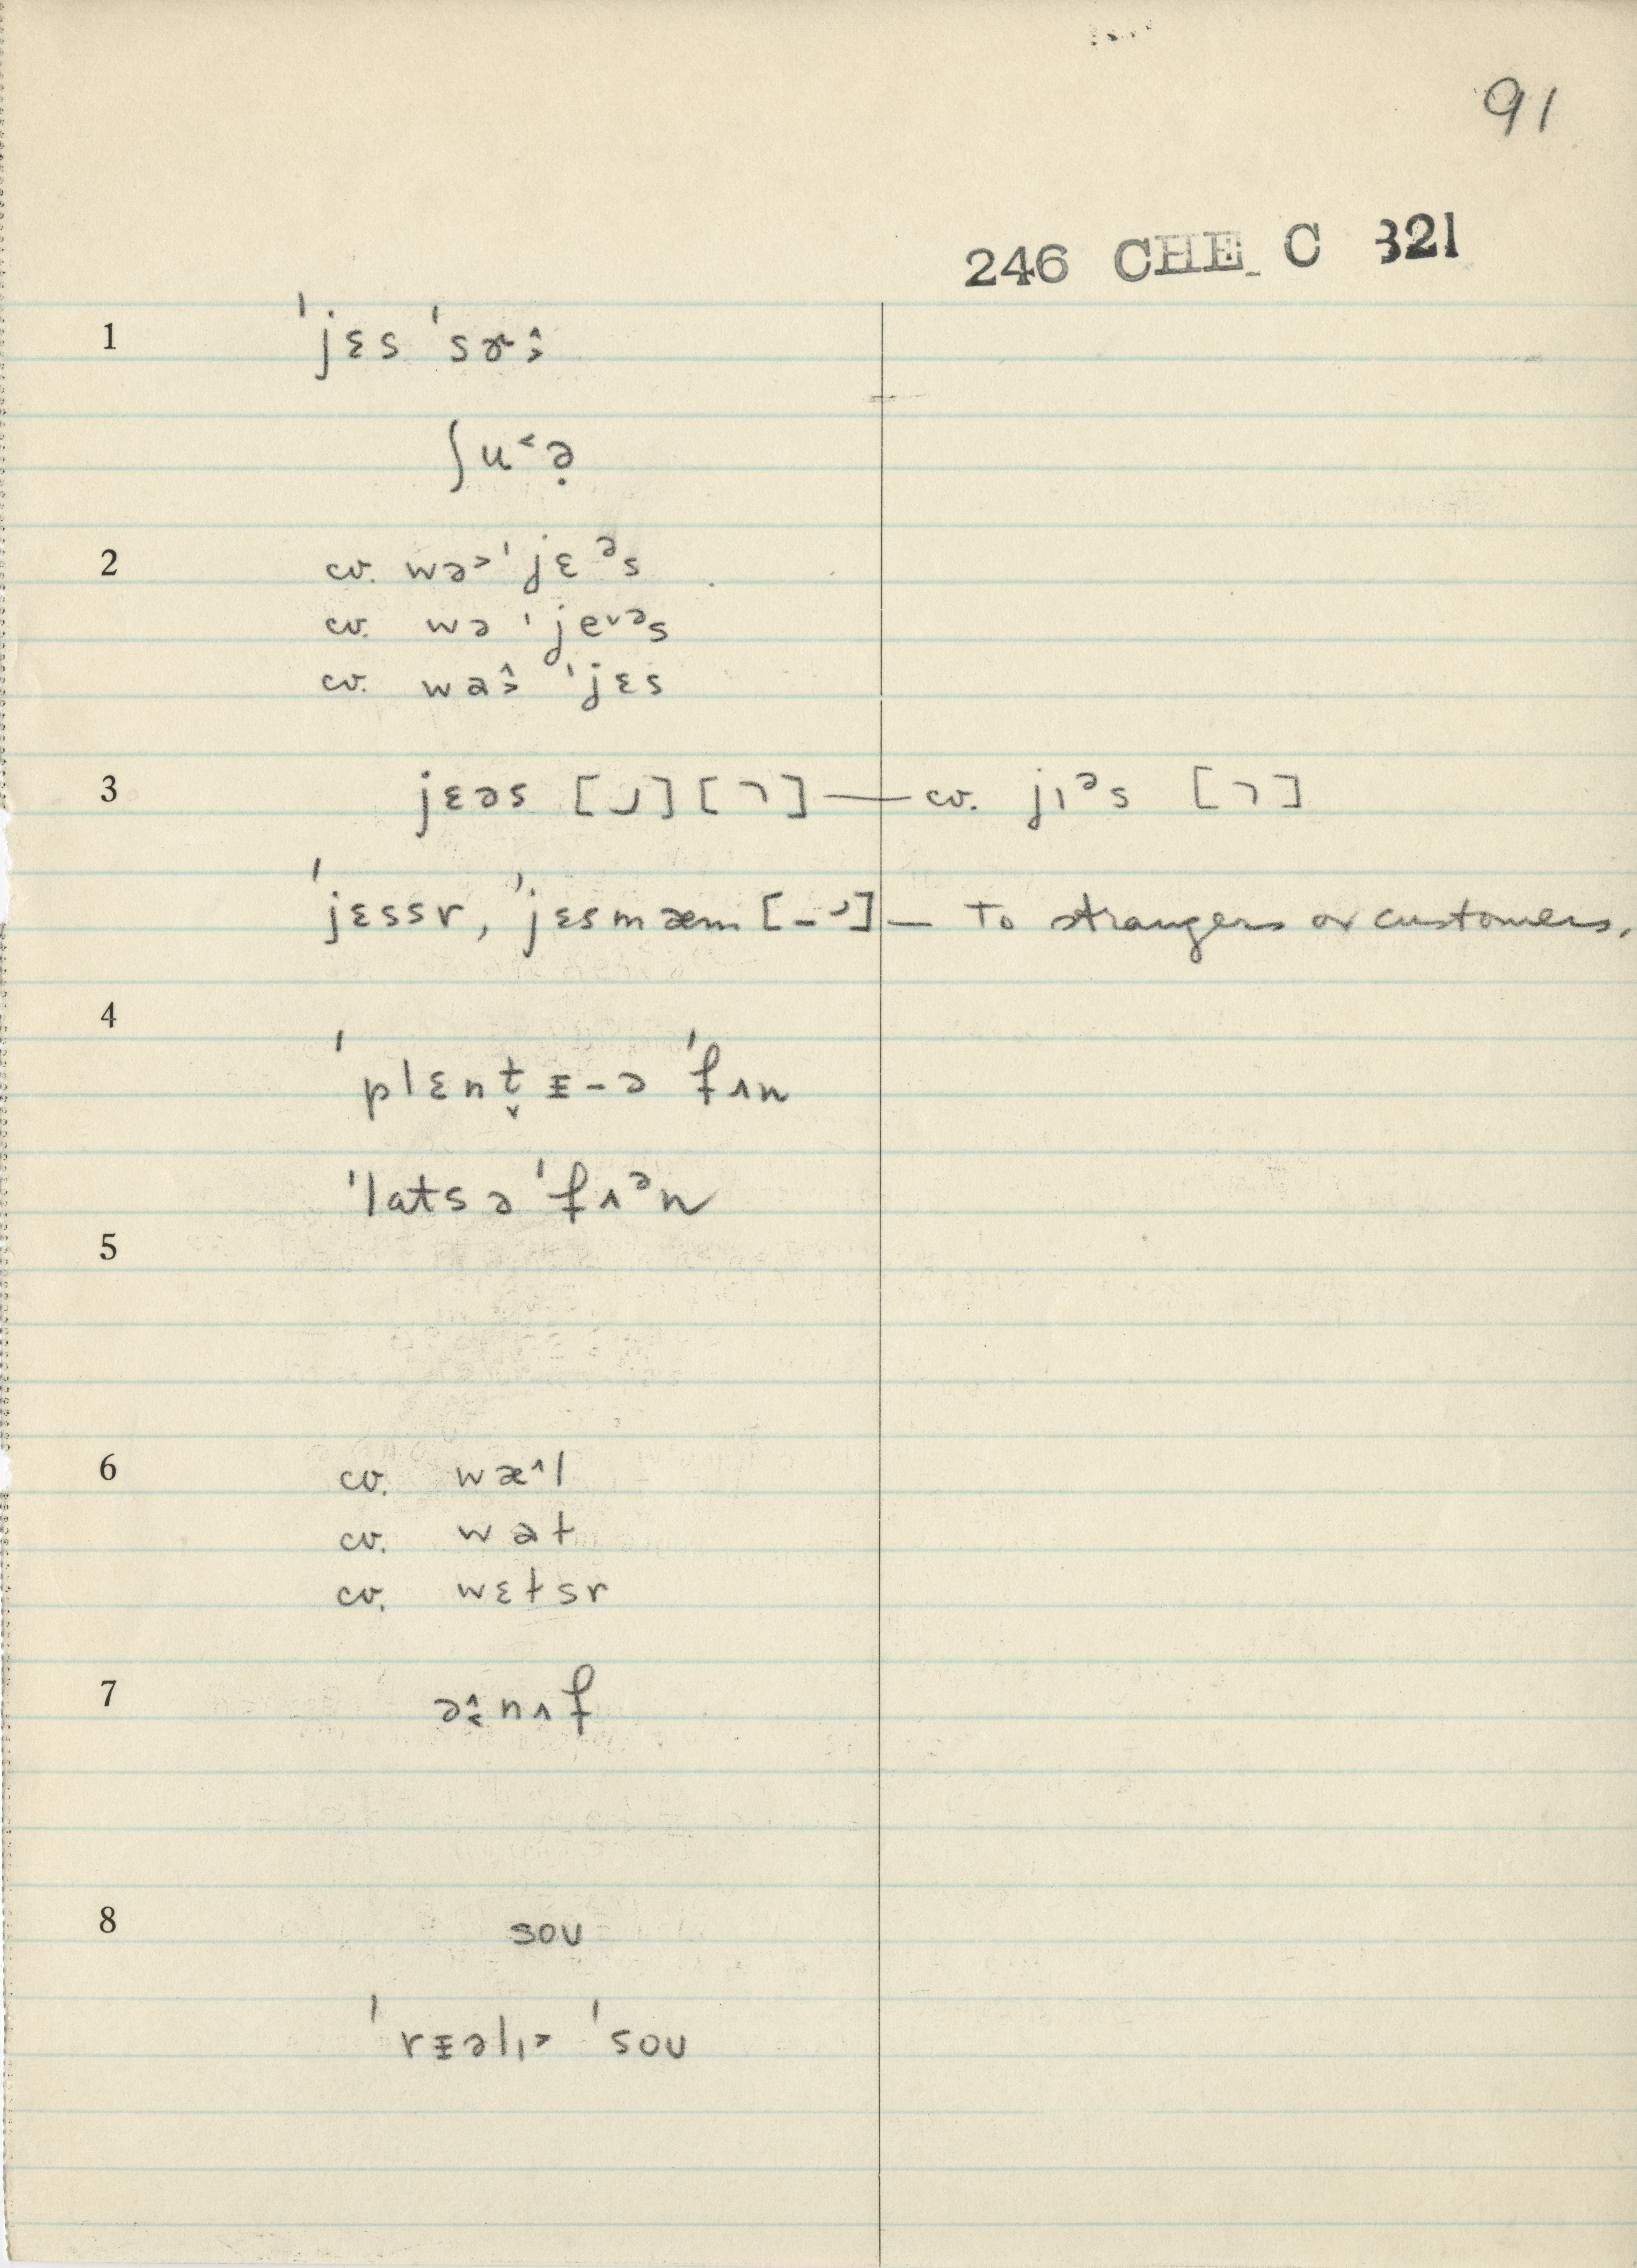 91
246 CHE C 321
1 ˈjɛs ˈsɚ˔˃
ʃu˂ə̣
2 cv. wə˃ˈjɛᵊs
cv. wəˈje˅ᵊs
cv. wa˄˃ ˈjɛs
3 jɛəs [ ᒧ ] [ ᒣ ] — cv. jıᵊs [ ᒣ ]
ˈjɛssr, ˈjɛsmæm [–ᒧ] — To strangers or customers.
4 ˈplɛnt̬ᵻ-ə ˈfʌn
ˈlats ə ˈfʌᵊn
5
6 cv. wæ˄l
cv. wəɫ
cv. wɛɫsr
7 ə˄˂nʌf
8 soʊ
ˈrᵻəlı˃ ˈsoʊ